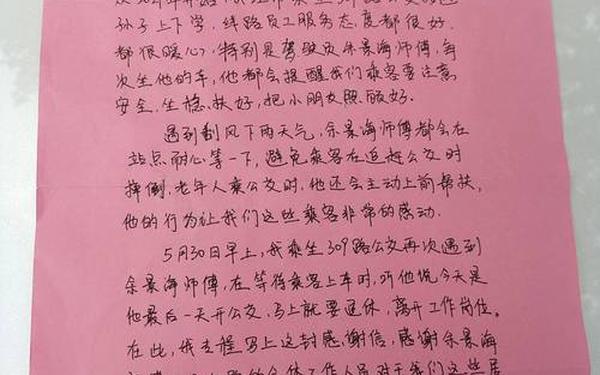 孙子上下学，线路员工服务态度都很好，
都很暖心，特别是驾驶员余景海师傅，每
次坐他的车，他都会提醒我们乘客要注意
安全，坐稳扶好，把小朋友照顾好。
遇到刮风下雨天气，余景海师傅都会在
站点耐心等一下，避免乘客在追赶公交时
摔倒，老年人乘公交时，他还会主动上前帮扶，
他的行为让我们这些乘客非常的感动。
5月30日早上，我乘坐309路公交再次遇到
余景海师傅，在等待乘客上车时，听他说今天是
他最后一天开公交，马上就要退休，离开工作岗位。
在此，我专程写上这封感谢信，感谢余景海
工作人员对于我们这些居